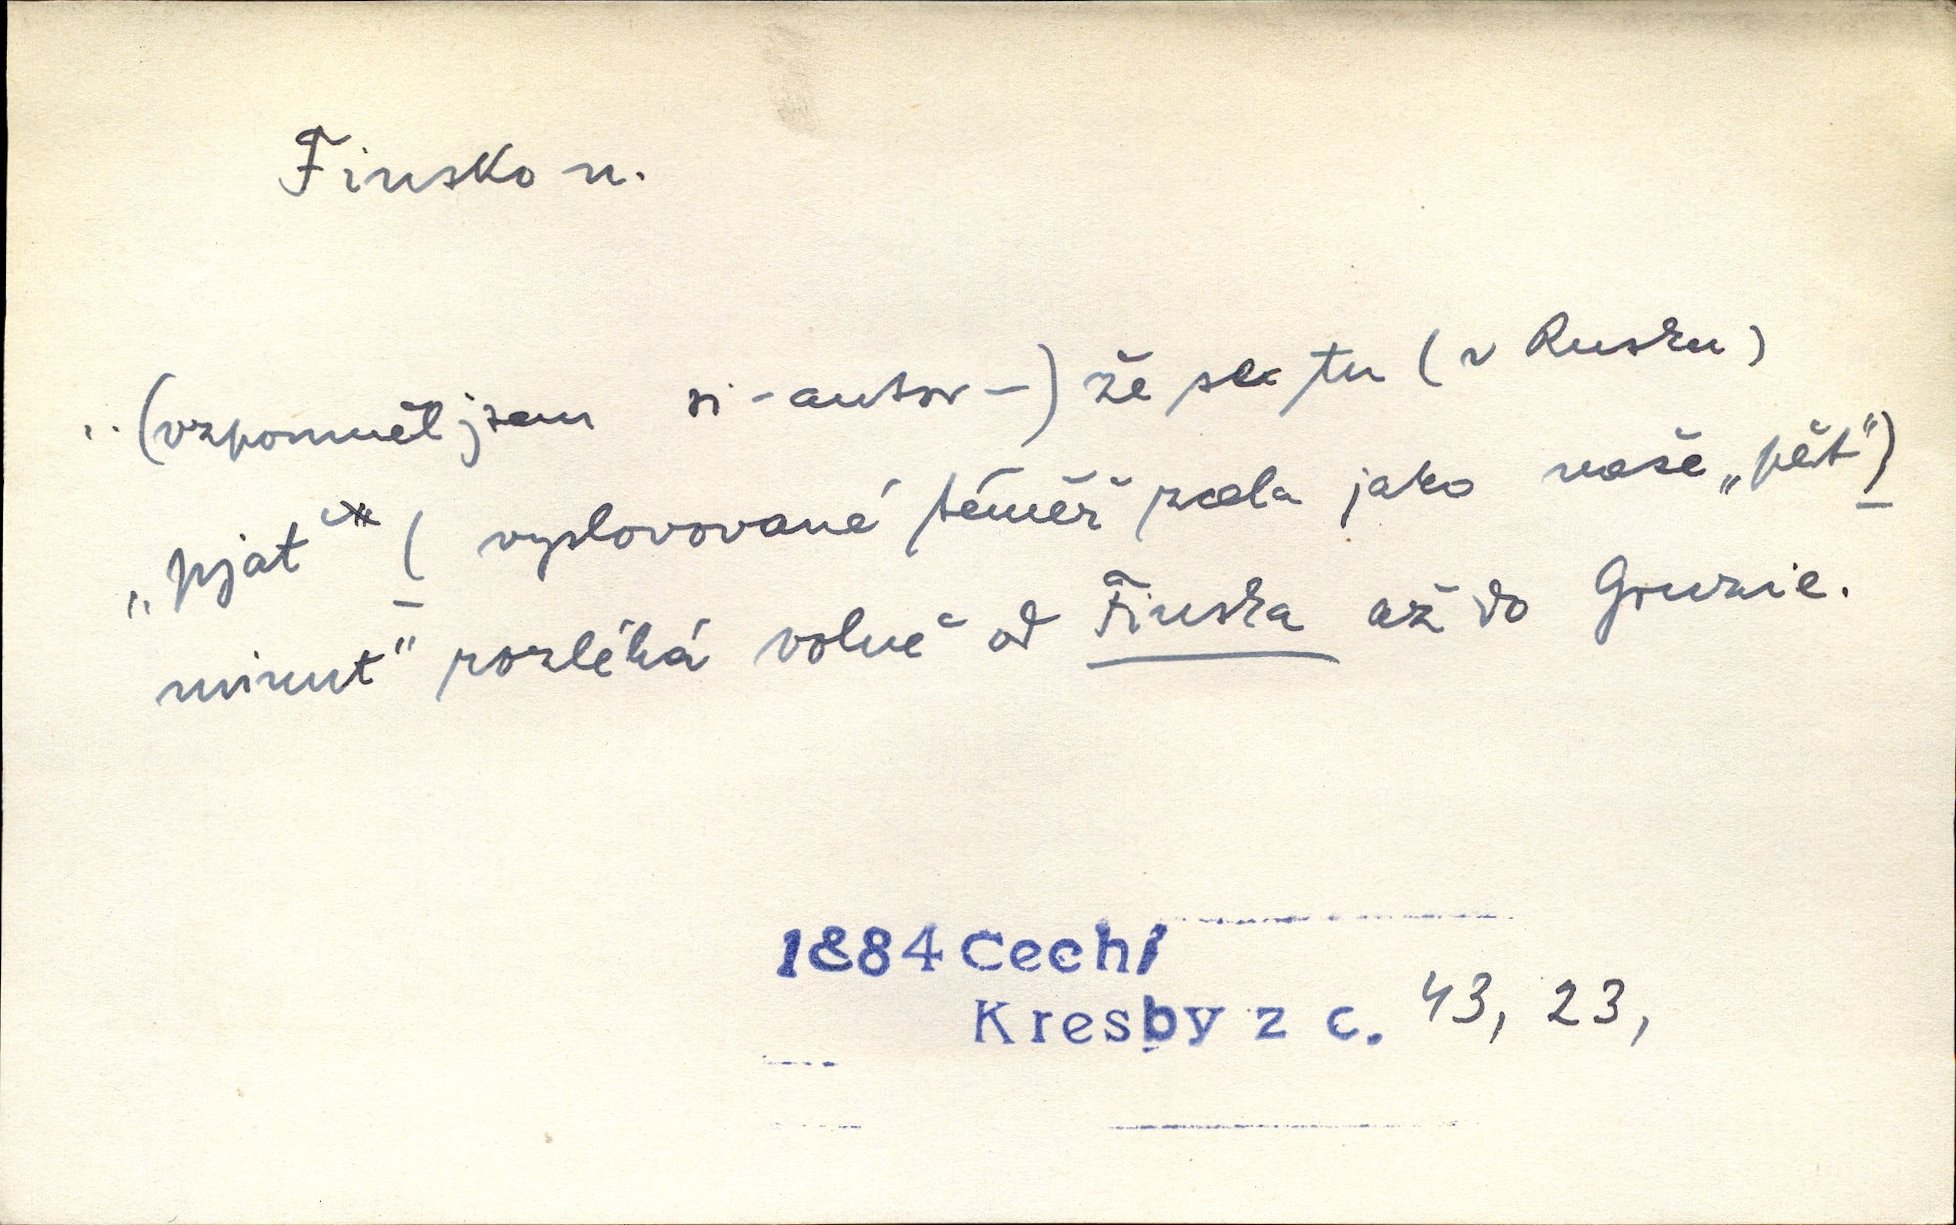 Finsko n.
.. (vzpomněl jsem si - autor -) že se tu (v Rusku)
„pjať (vyslovované téměř zcela jako naše „pět")
minut" rozléhá volně od Finska až do Gruzie.
1884 Cech
Kresby z c. 43, 23,